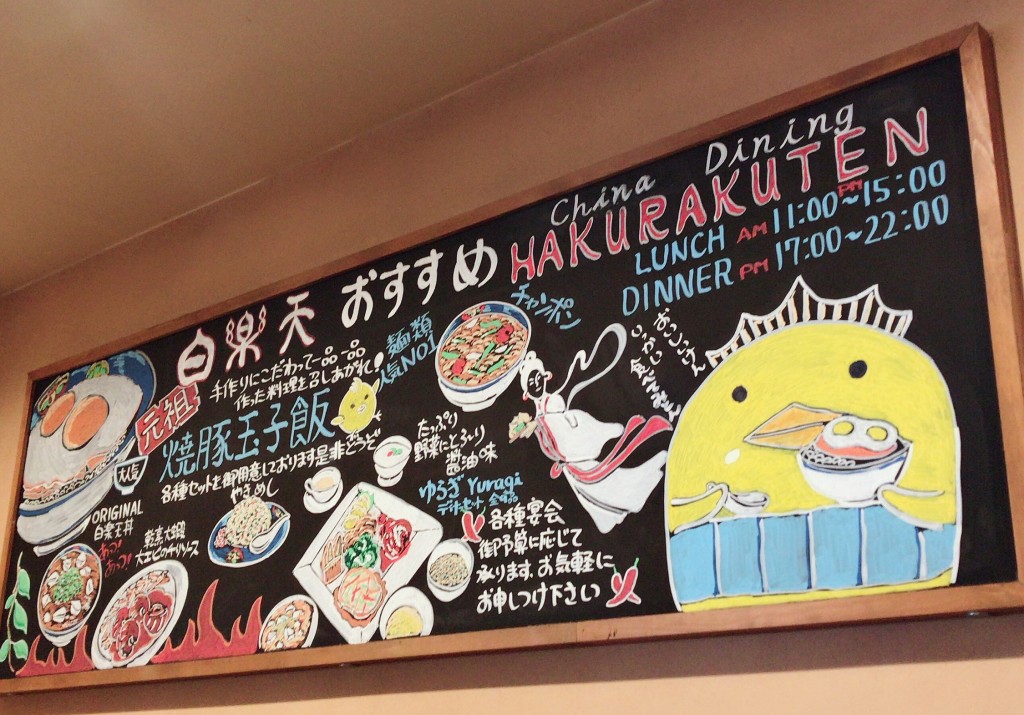 China Dining
HAKURAKUTEN
LUNCH AM 11:00~PM 15:00
DINNER PM 17:00~22:00
白楽天 おすすめ
手作りにこだわって一品一品
作った料理を召しあがれ!
元祖
焼豚玉子飯
各種セットを御用意しております是非どうぞ
やきめし
麺類
人気No1
チャンポン
たっぷり
野菜にとろ〜り
醤油味
ゆるぎ Yuragi
各種宴会
御予算に応じて
承ります。お気軽に
お申しつけ下さい
ORIGINAL
白楽玉丼
あっ!
あっ!
乾烹大蝦
大エビのチリソース